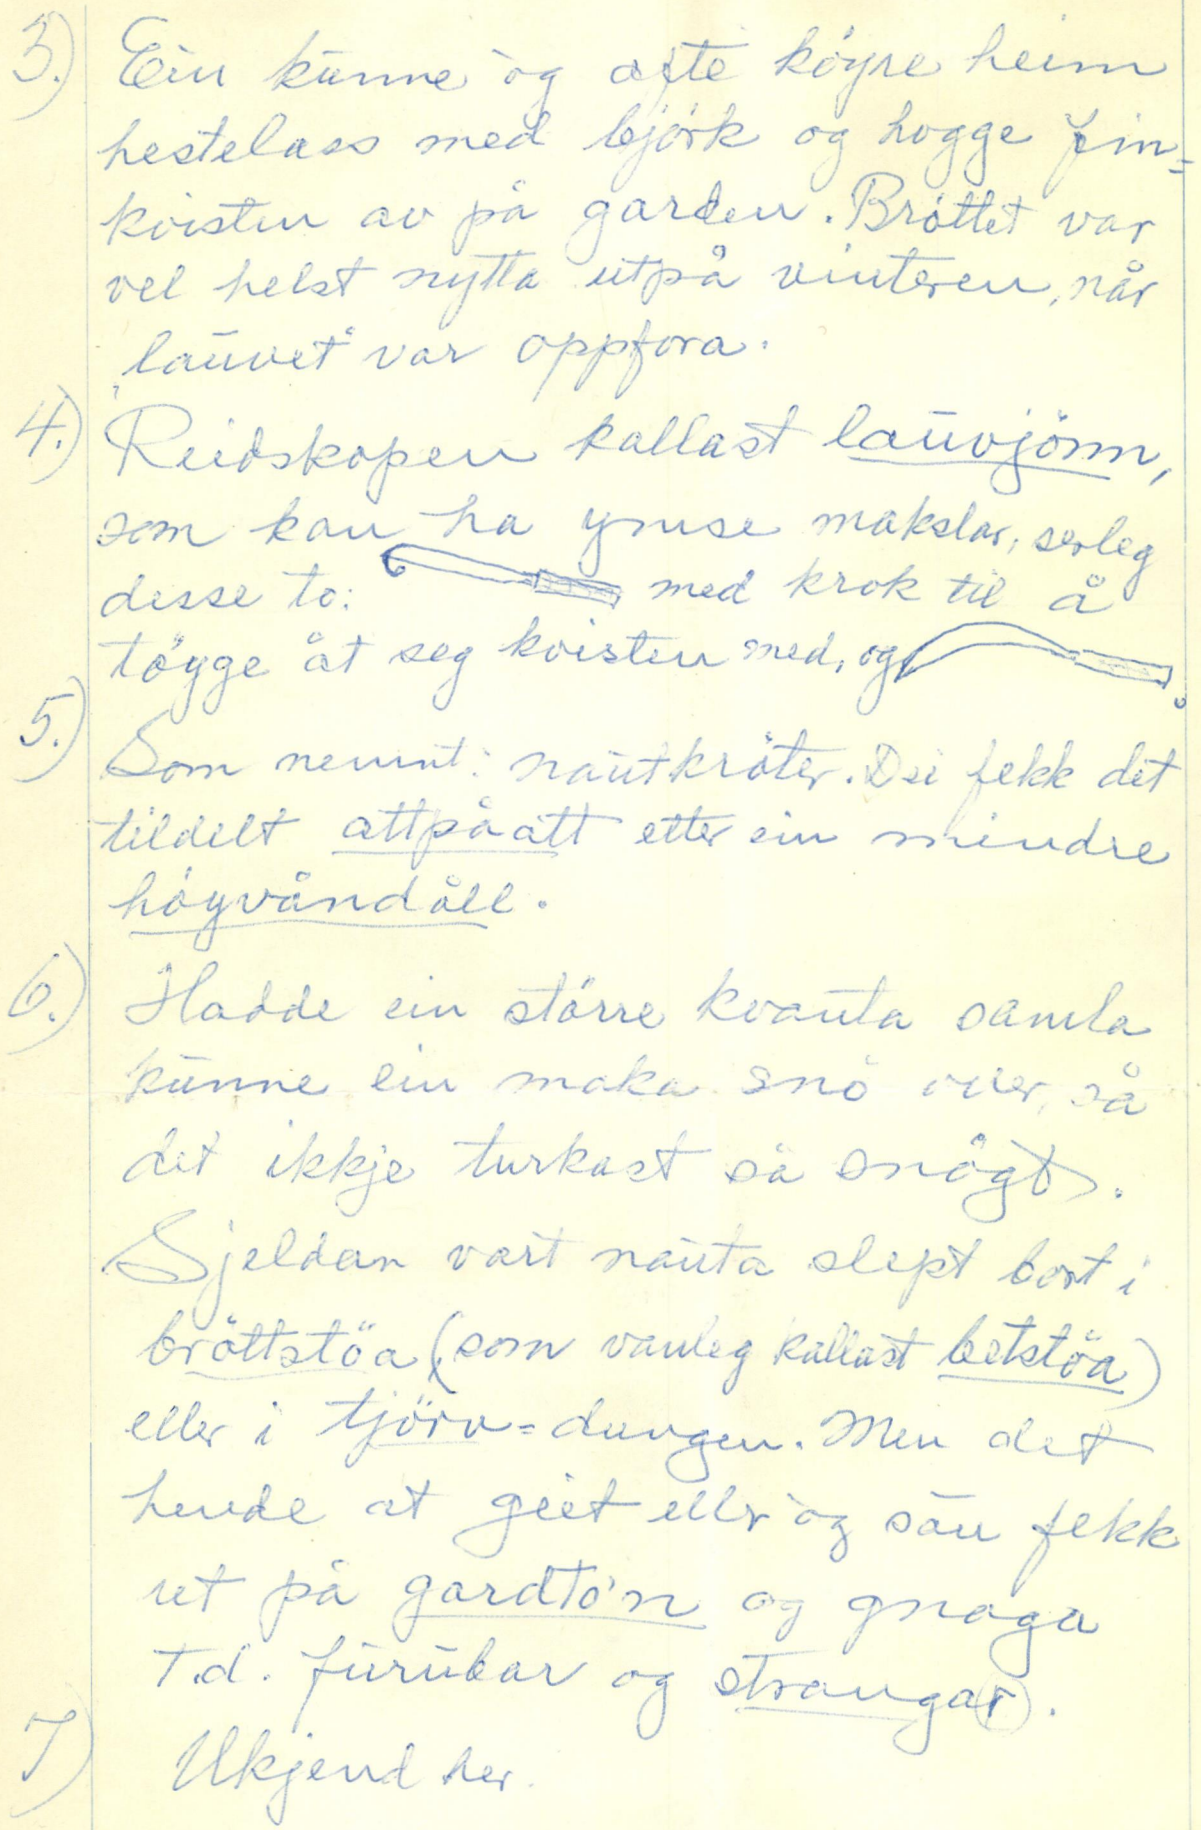 3.) Ein kunne òg ofte köyre heim
hestelass med björk og hogge fin=
kvisten av på garden. Bröttet var
vel helst nytta utpå vinteren, når
„lauvet" var oppfora.
4.) Reidskapen kallast lauvjönn,
som kan ha ymse makslar, serleg
desse to: med krok til å
töygge åt seg kvisten med, og
5.) Som nemnt: nautkröter. Dei fekk det
tildelt attpåatt etter ein mindre
höyvåndåll.
6.) Hadde ein större kvanta samla
kunne ein moka snö over, så
det ikkje turkast så snögt.
Sjeldan vart nauta slept bort i
bröttstöa (som vanleg kallast betstöa)
eller i tjörv=dungen. Men det
hende at geit eller òg sau fekk
ut på gardtòn og gnaga
t.d. furubar og strangar.
7) Ukjend her.